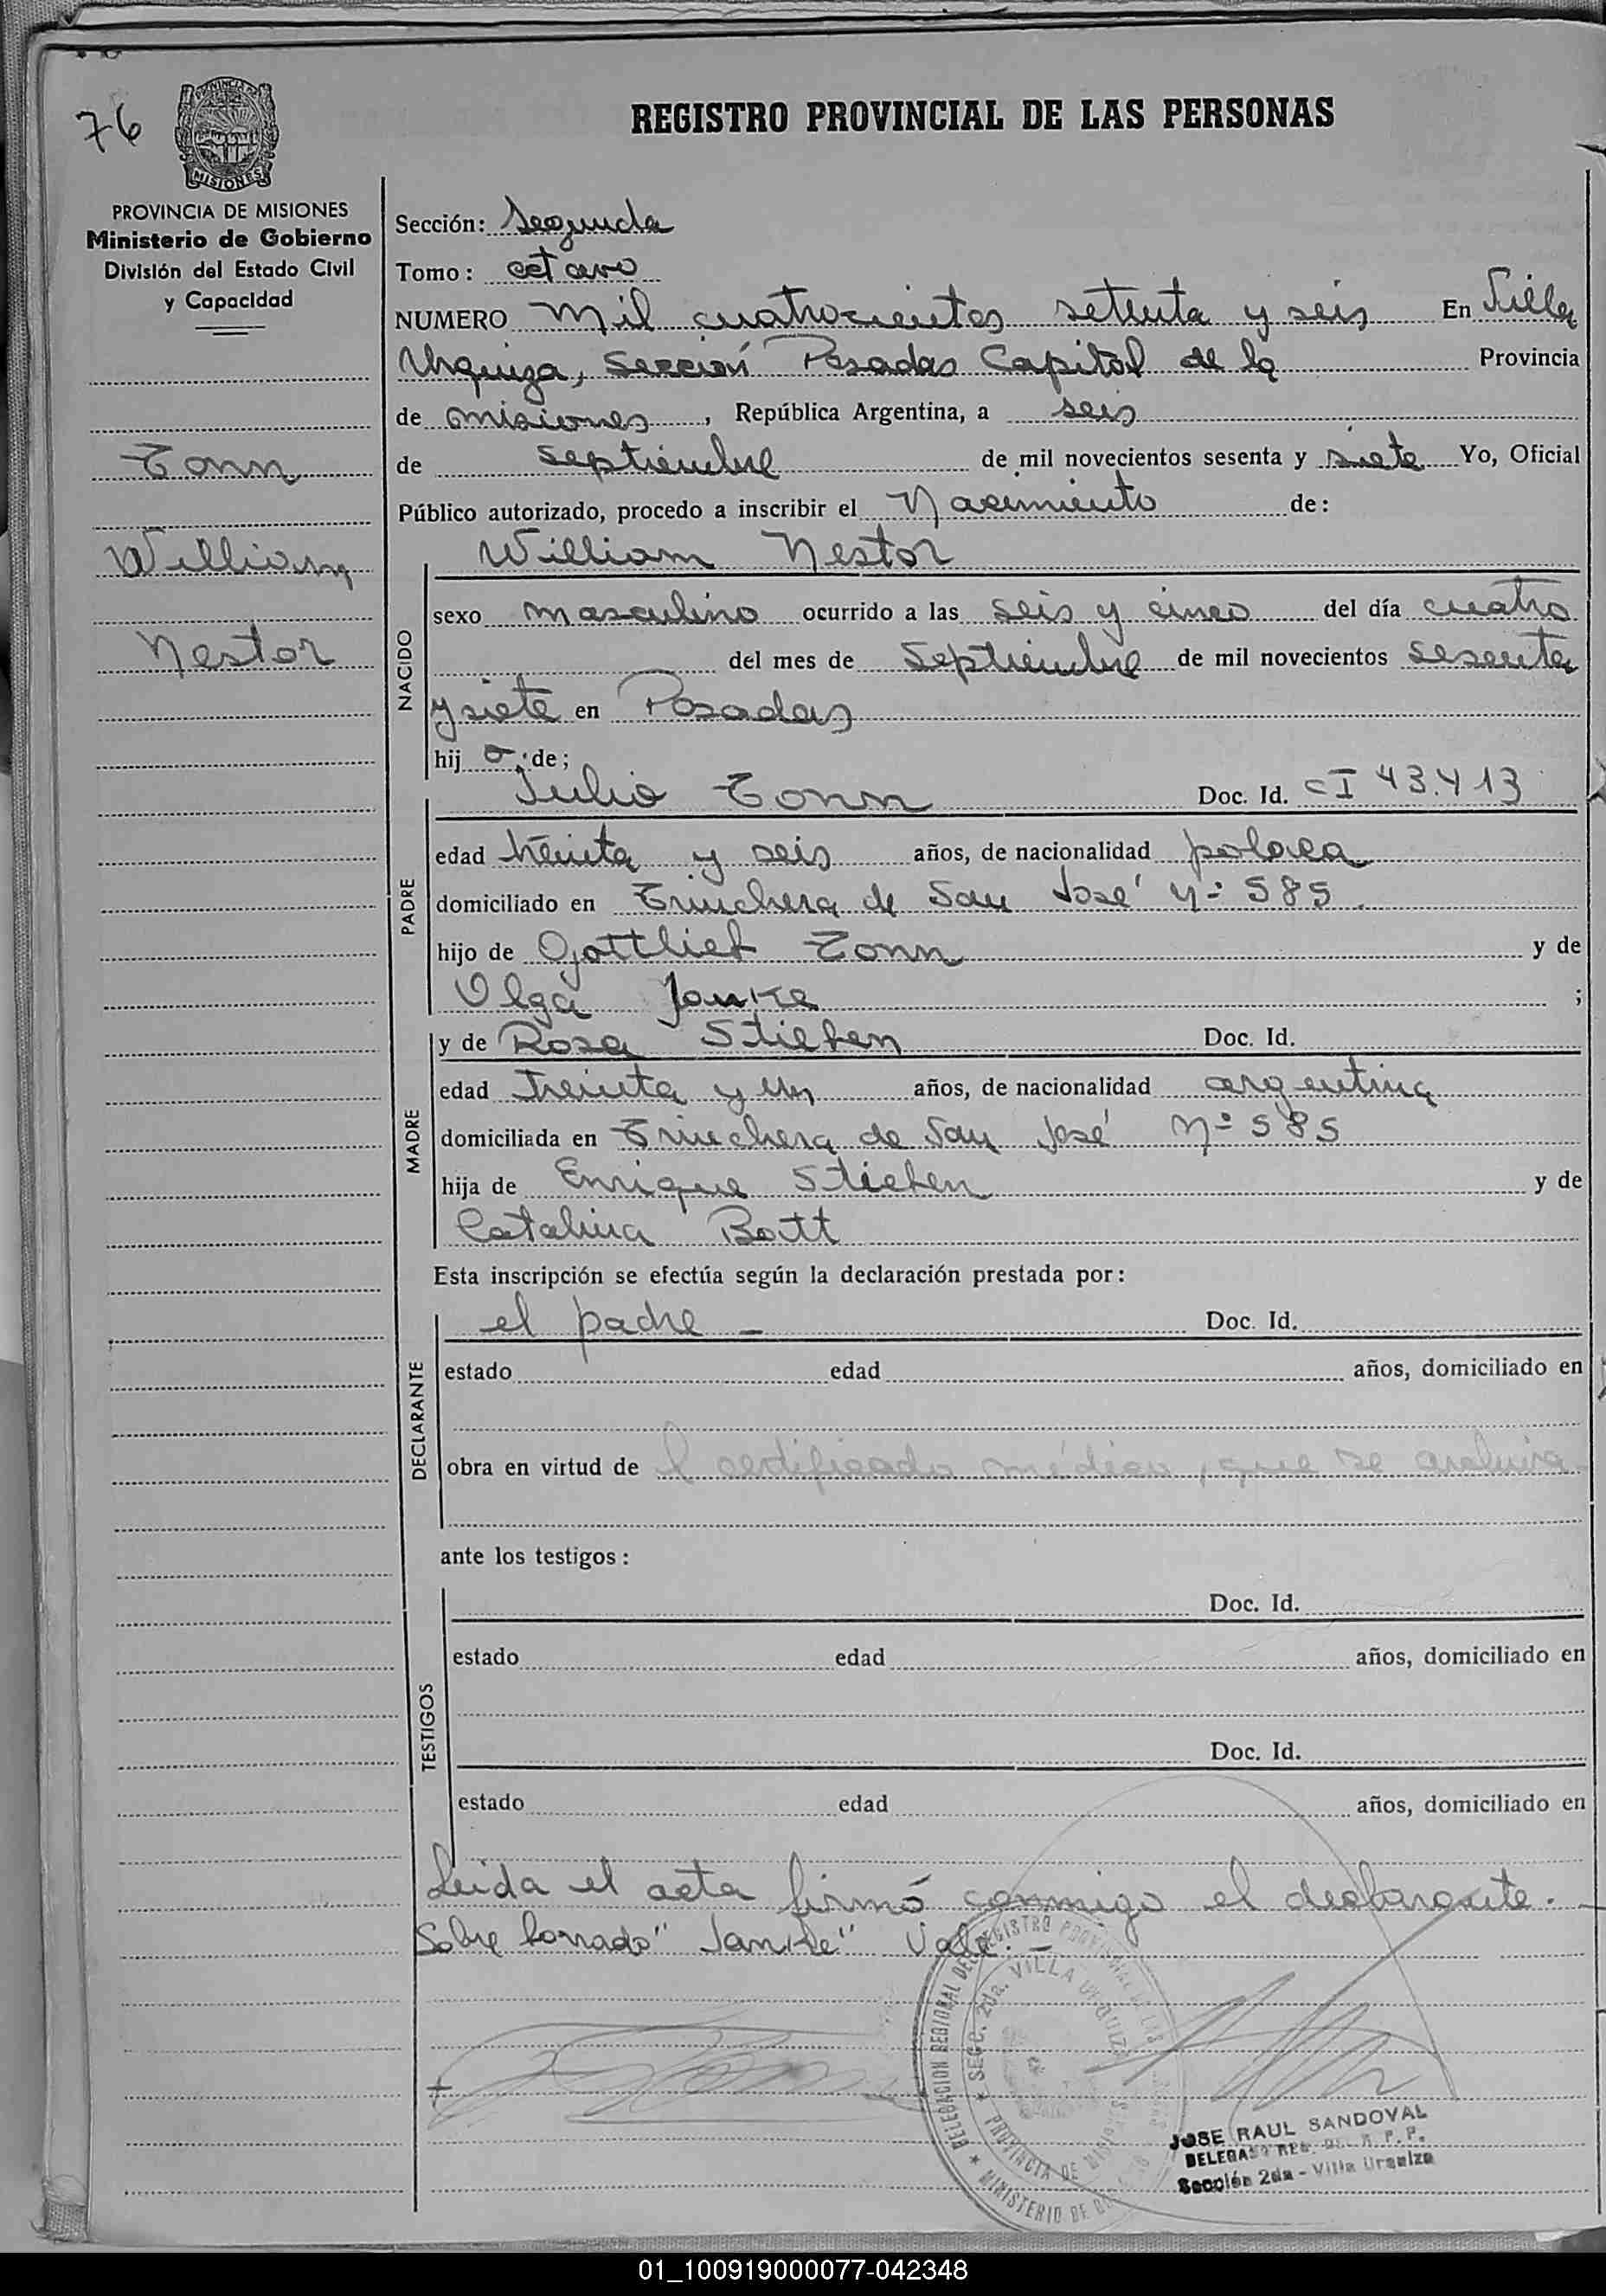 76
PROVINCIA DE MISIONES
Ministerio de Gobierno
División del Estado Civil
y Capacidad
Tonn
William
Nestor
REGISTRO PROVINCIAL DE LAS PERSONAS
Sección: Segunda
Tomo: octavo
NUMERO Mil cuatrocientos setenta y seis En Villa
Urquiza, Sección Posadas Capital de la Provincia
de misiones, República Argentina, a seis
de septiembre de mil novecientos sesenta y siete Yo, Oficial
Público autorizado, procedo a inscribir el Nacimiento de:
William Nestor
NACIDO
sexo masculino ocurrido a las seis y cinco del día cuatro
del mes de Septiembre de mil novecientos sesenta
y siete en Posadas
hij o de;
PADRE
Julio Tonn Doc. Id. CI 43.413
edad treinta y seis años, de nacionalidad polaca
domiciliado en Trinchera de San José Nº 585.
hijo de Gottlieb Tonn y de
Olga Janke ;
MADRE
y de Rosa Stieben Doc. Id.
edad Treinta y un años, de nacionalidad argentina
domiciliada en Trinchera de San José Nº 585
hija de Enrique Stieben y de
Catalina Bott
Esta inscripción se efectúa según la declaración prestada por:
DECLARANTE
el padre - Doc. Id.
estado edad años, domiciliado en
obra en virtud de l certificado médico, que se archiva
ante los testigos:
TESTIGOS
Doc. Id.
estado edad años, domiciliado en
Doc. Id.
estado edad años, domiciliado en
Leida el acta firmó conmigo el declarante.-
Sobre borrado "Janke" Vale.-
DELEGACION REGIONAL DEL REGISTRO PROVINCIAL DE LAS
SECC. 2da. VILLA URQUIZA
PROVINCIA DE MISIONES
MINISTERIO DE
JOSE RAUL SANDOVAL
DELEGADO REG. DEL R. P. P.
Sección 2da - Villa Urquiza
01_100919000077-042348